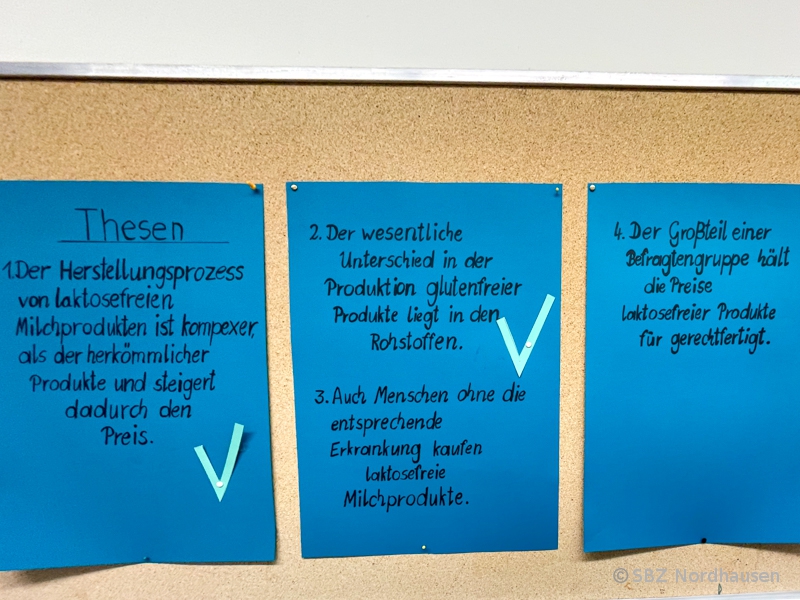 Thesen
1. Der Herstellungsprozess
von laktosefreien
Milchprodukten ist kompexer,
als der herkömmlicher
Produkte und steigert
dadurch den
Preis.
2. Der wesentliche
Unterschied in der
Produktion glutenfreier
Produkte liegt in den
Rohstoffen.
3. Auch Menschen ohne die
entsprechende
Erkrankung kaufen
laktosefreie
Milchprodukte.
4. Der Großteil einer
Befragtengruppe hält
die Preise
laktosefreier Produkte
für gerechtfertigt.
© SBZ Nordhausen